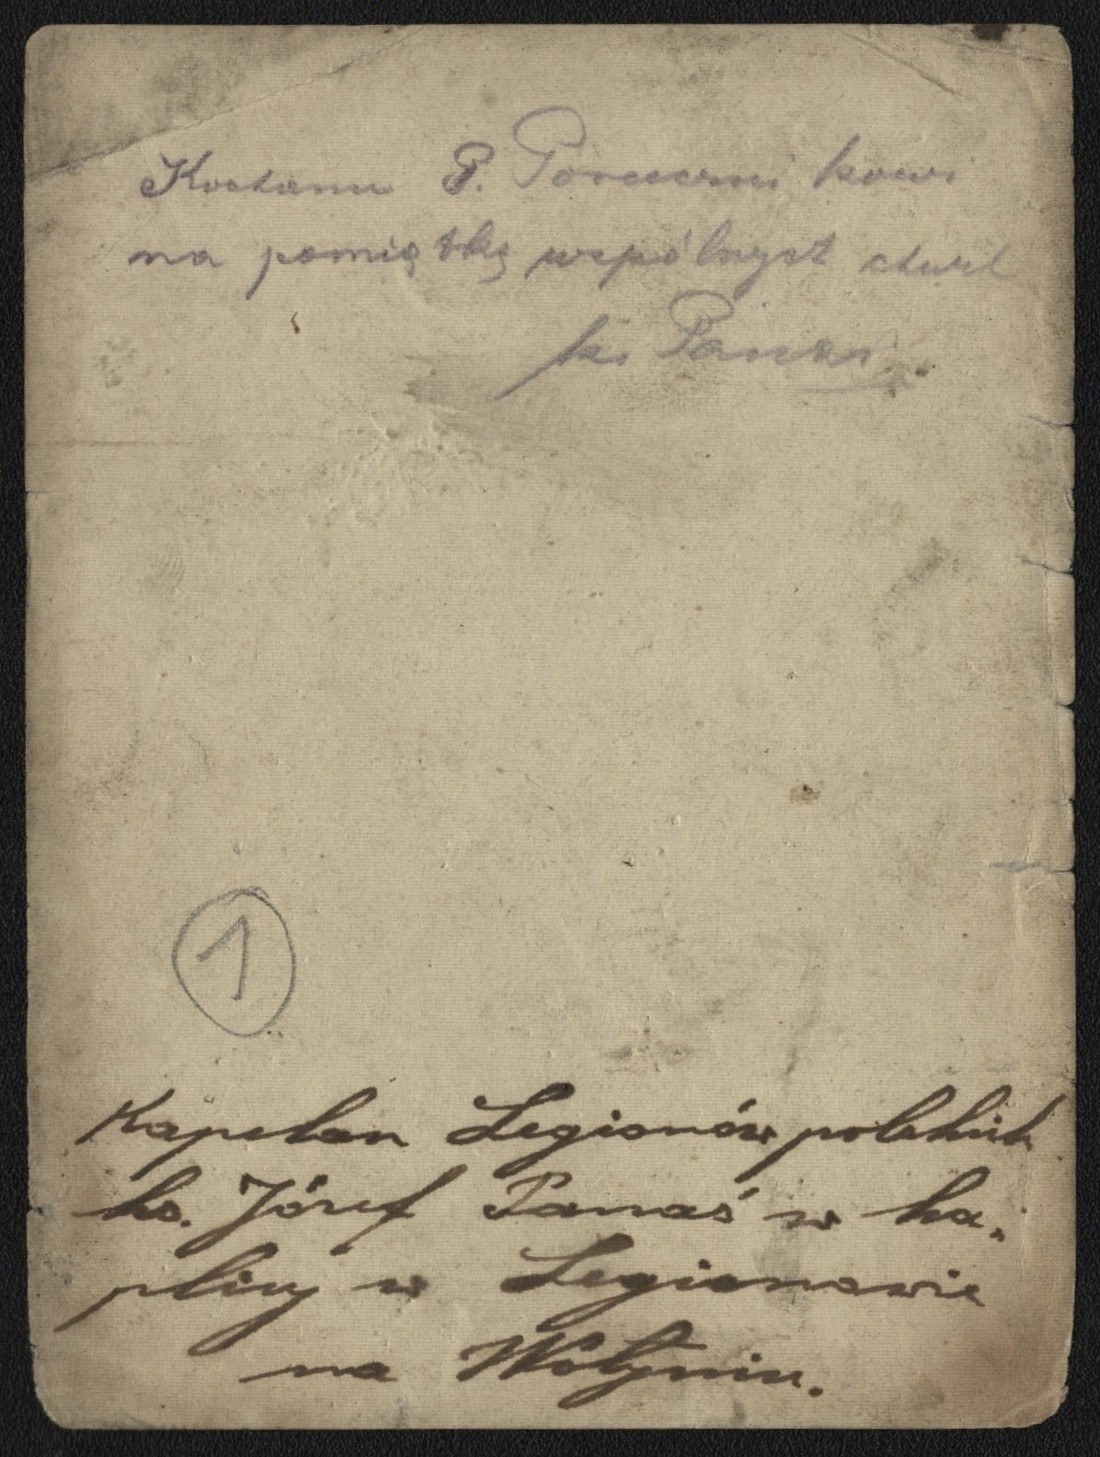 Kochanu P. Porucznikowi
na pamiątkę wspólnych chwil
ks. Panaś
1
Kapelan Legionów polskich
ks. Józef Panaś w ka„
plicy w Legionowie
na Wołyniu.